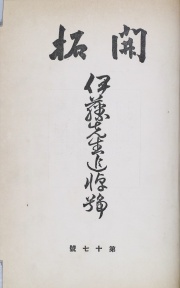 開拓
伊藤先生追悼號
第十七號